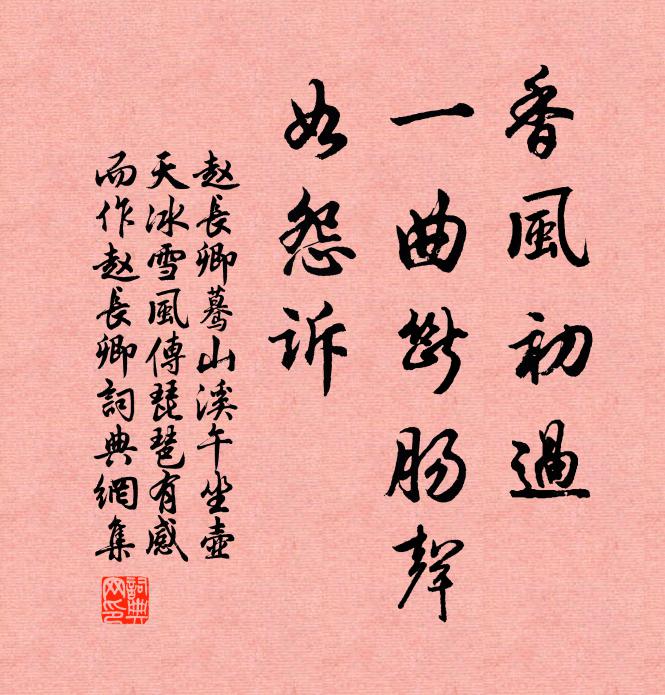 香風初過
一曲斷肠聲
如怨訴
赵長卿蓦山溪午坐壺
天冰雪風傳琵琶有感
而作赵長卿詞典網集
詞典
网印